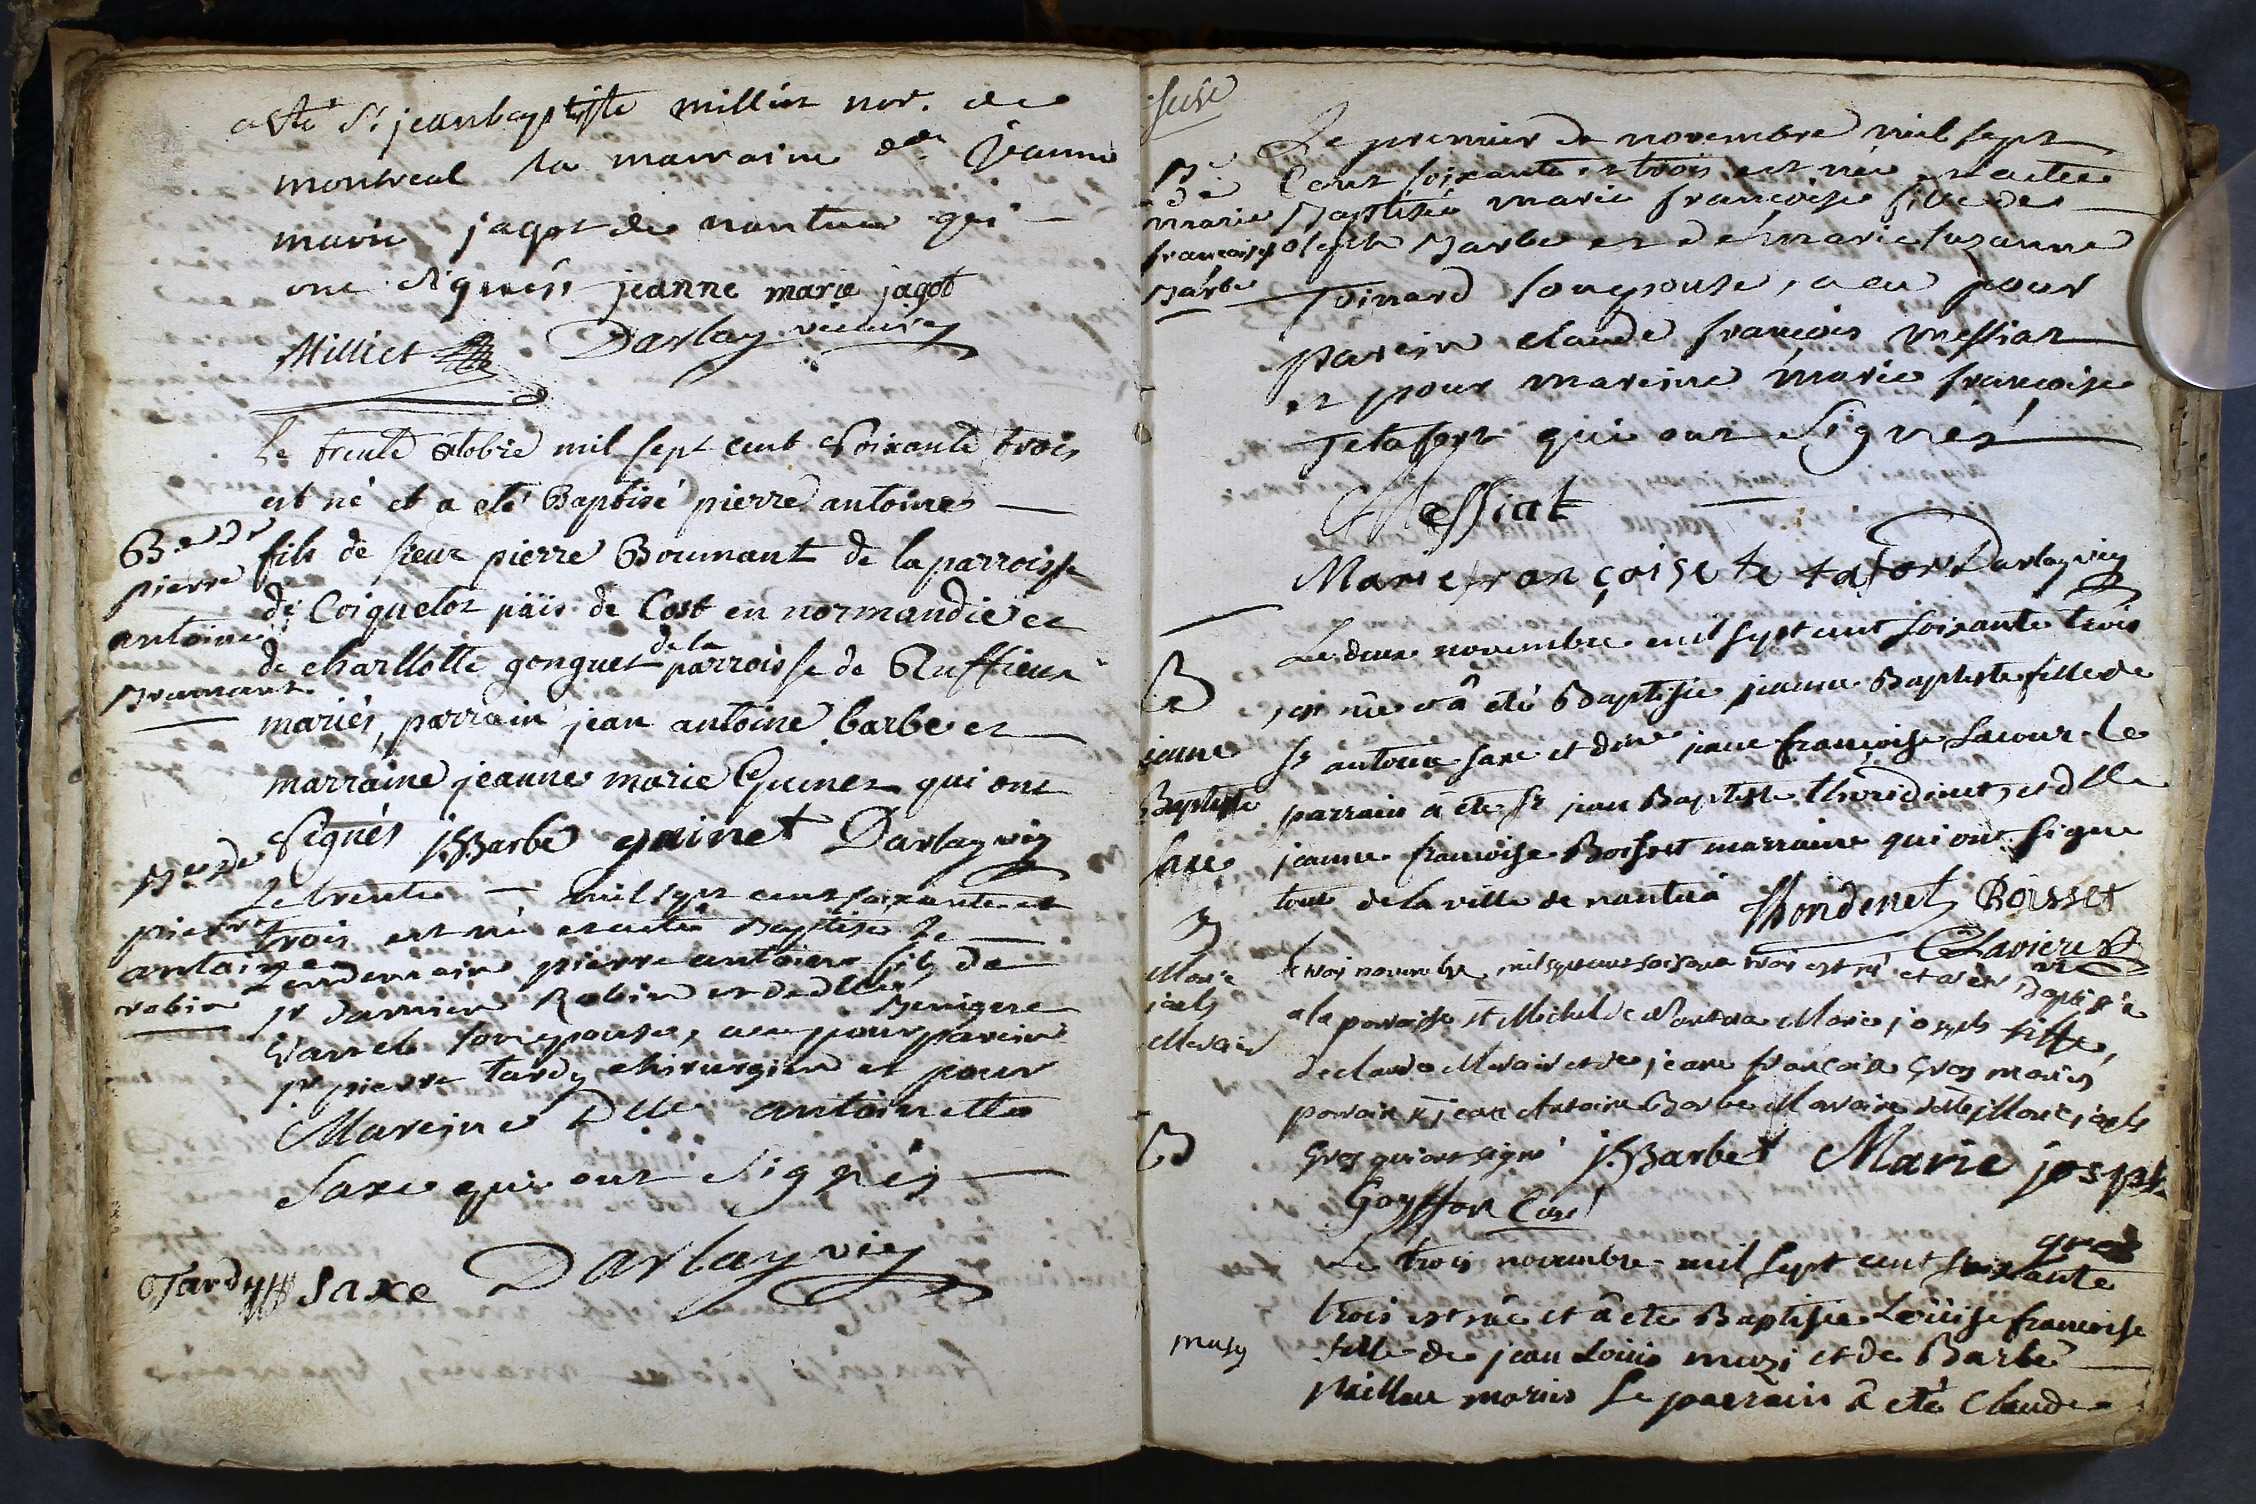 a été Sr jean baptiste milliet nor. de
montreal la marraine dlle jeanne
marie jagot de nantua qui
ont signés jeanne marie jagot
Milliet Darlay vicaire
Le trente octobre mil sept cent Soixante trois
est né et a eté Baptisé pierre antoine
Bme de
pierre
antoine
Bramant
fils de sieur pierre Boumant de la parroisse
de Coiquelot päis de Cost en normandie et
de charllotte gonguet de la parroisse de Ruffieux
mariés, parrain jean antoine barbe et
marraine jeanne marie Guinet qui ont
Signés jBarbe guinet Darlay vic
Bme de
pierre
antoine
robin
Le trente mil sept cent soixante et
trois est né et a eté Baptisé le
Lendemain pierre antoine fils de
sr damien Robin et de dlle Benigne
son epouse, a eu pour parein
sr pierre tardy chirurgien et pour
Mareine Dlle antoinette
Saxe qui ont Signés
Tardy saxe Darlay vic
seise
Be
de
marie
francoise
Barbe
Le premier de novembre mil sept
Cent soixante et trois est née et a eté
Baptisée marie francoise fille de
joseph Barbe et de marie suzanne
Toinard son epouse, a eu pour
parein claude françois messiat
et pour mareine marie francoise
Tetafort qui ont Signés
Messiat
Marie françoise te tafort Darlay vic
B
jeanne
Baptiste
saxe
Le deux novembre mil sept cent soixante trois
est née et â été Baptisée jeanne Baptiste fille de
Sr antoine saxe et dme jeane françoise Lacour le
parrain a été Sr jean Baptiste thondenet, et dlle
jeanne francoise Boisset marraine qui ont signe
tous de la ville de nantua thondenet Boisset
B
Marie
joseph
Mersier
le trois novembre mil sept cent soisante trois est né et a été Baptisée
a la parroisse St Michel de Nantua Marie joseph fille
de claude et de jeane françoise Gros mariés
parrain sr jean Antoine Barbe Maraine Marie joseph
Gros qui ont signé jBarbet Marie joseph
gros
Goyffon Curé
B
musy
Le trois novembre mil sept cent soixante
trois est née et â été Baptisée Loüise francoise
fille de jean Louis muzi et de Barbe
mariés Le parrain â été Claude